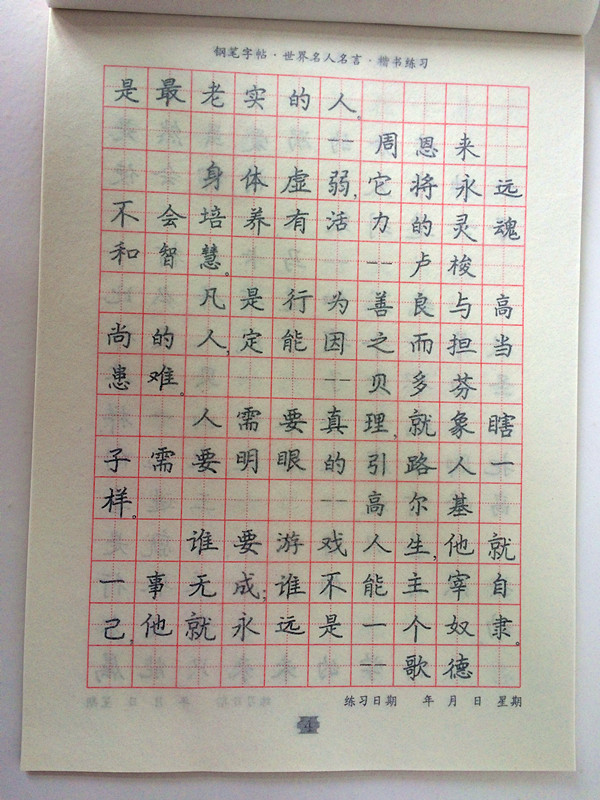 钢笔字帖·世界名人名言·楷书练习
是最老实的人。
—周恩来
身体虚弱,它将永远
不会培养有活力的灵魂
和智慧。——卢梭
凡是行为善良与高
尚的人,定能因之而担当
患难。——贝多芬
人需要真理,就象瞎
子需要明眼的引路人一
样。——高尔基
谁要游戏人生,他就
一事无成;谁不能主宰自
己,他就永远是一个奴隶。
——歌德
练习日期 年 月 日 星期